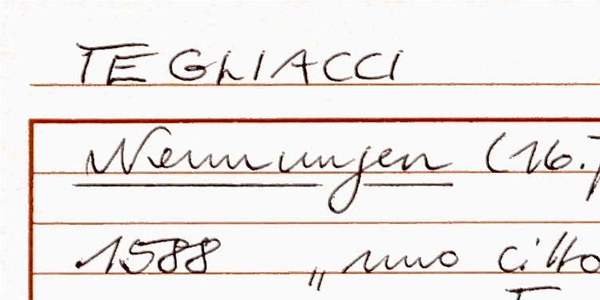 TEGLIACCI
Nennungen (16.
1588 „uno citto